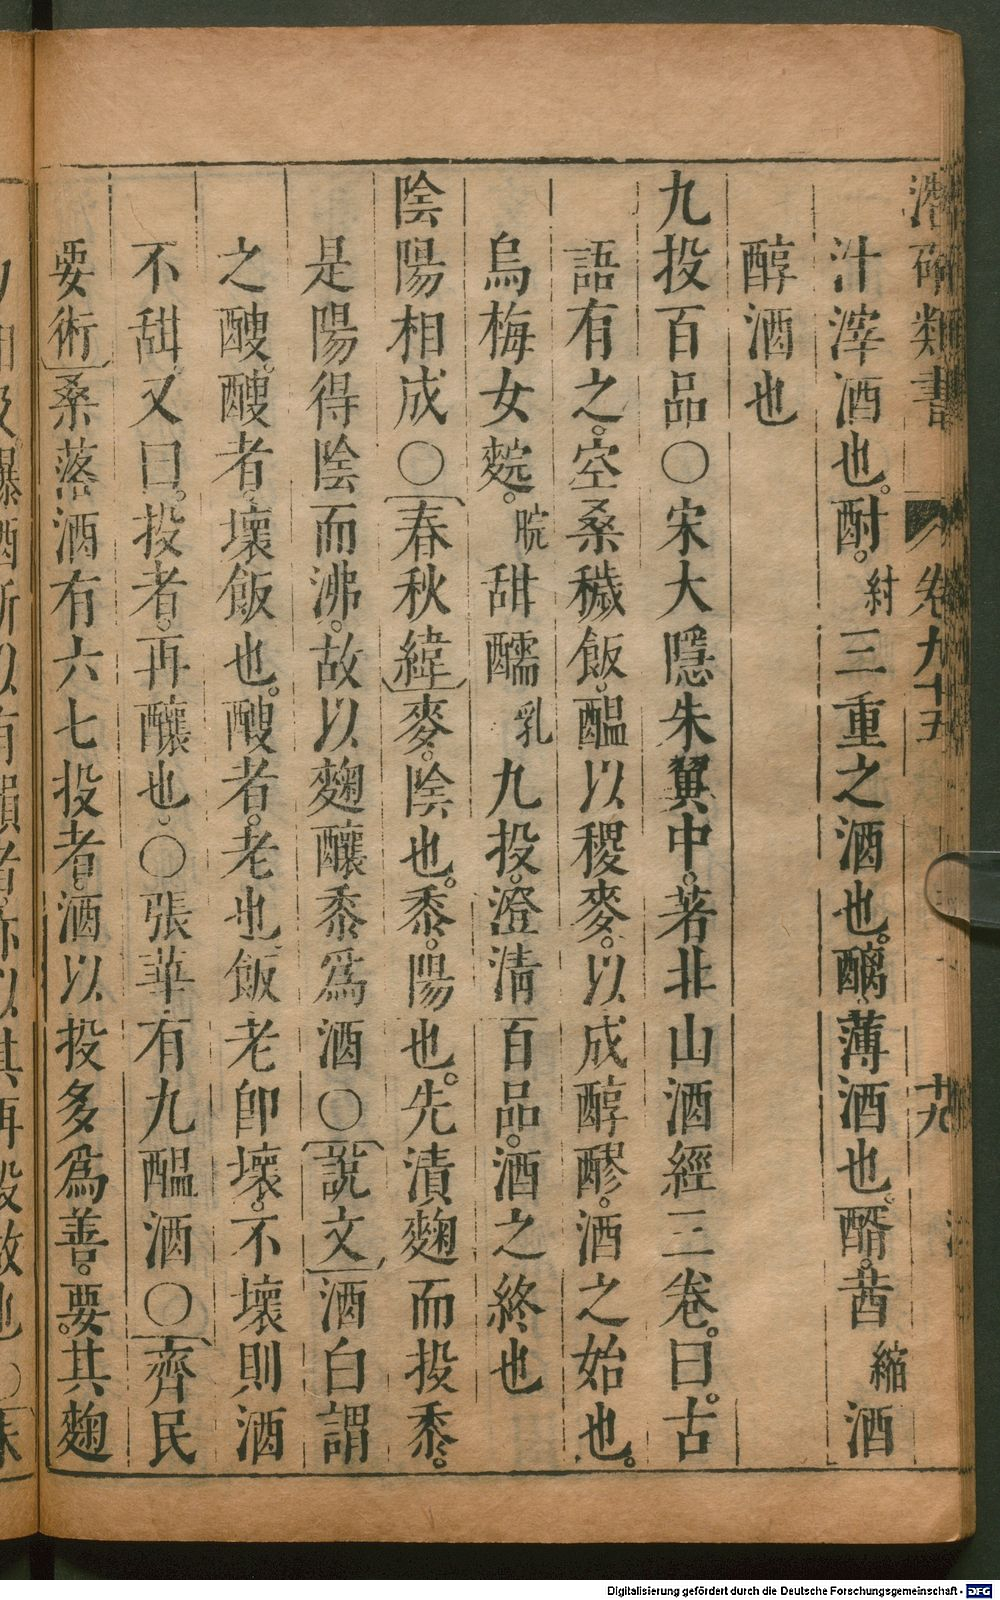 潛確類書 卷九十五 十九
汁滓酒也。酎。紂三重之酒也。醨薄酒也。醑。茜縮酒
醇酒也
九投百品〇宋大隱朱翼中。著北山酒經三卷。曰。古
語有之。空桑穢飯。醞以稷麥。以成醇醪。酒之始也。
烏梅女䴷。脘甜醹乳九投。澄淸百品。酒之終也
陰陽相成〇〔春秋緯〕麥。陰也。黍。陽也。先漬麴而投黍。
是陽得陰而沸。故以麴釀黍爲酒〇〔說文〕酒白謂
之醙。醙者。壞飯也。醙者。老也飯老卽壞。不壞則酒
不甜。又曰。投者。再釀也。〇張華有九醞酒〇〔齊民
要術〕桑落酒有六七投者。酒以投多爲善。要。其麴
Digitalisierung gefördert durch die Deutsche Forschungsgemeinschaft - DFG